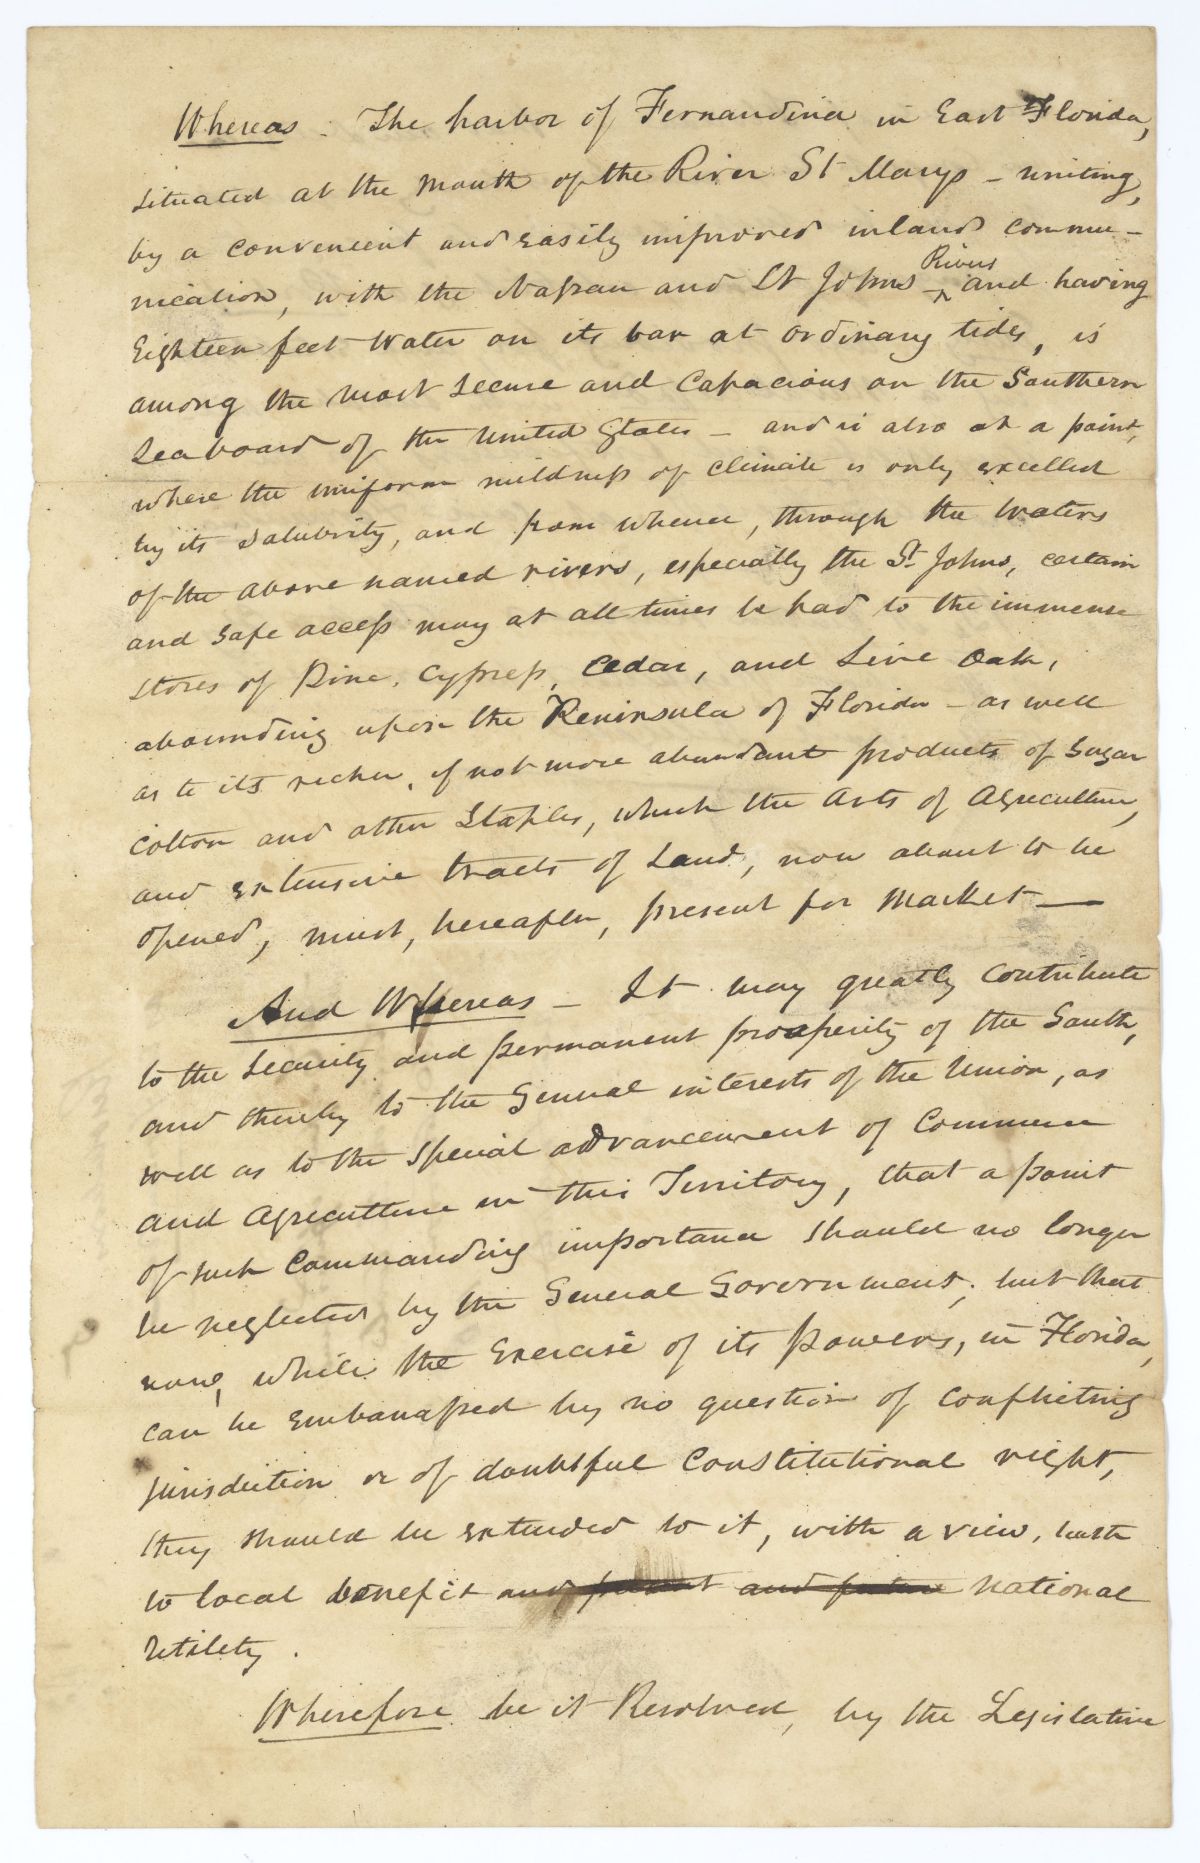 Whereas. The harbor of Fernandina in East Florida,
situated at the mouth of the River St Marys – uniting,
by a convenient and easily improved inland commu-
nication, with the Nassau and St Johns Rivers and having
Eighteen feet water on its bar at ordinary tides, is
among the most secure and Capacious on the Southern
Seaboard of the United States – and is also at a point,
where the uniform mildness of climate is only excelled
by its salubrity, and from whence, through the waters
of the above named rivers, especially the St. Johns, certain
and safe access may at all times be had to the immense
stores of Pine, Cypress, Cedar, and Live Oak,
abounding upon the Peninsula of Florida – as well
as to its richer, if not more abundant products of Sugar
Cotton and other Staples, which the Arts of Agriculture,
and extensive tracts of Land, now about to be
opened, must, hereafter, present for Market —
And Whereas – It may greatly contribute
to the Security and permanent prosperity of the South,
and thereby to the General interests of the Union, as
well as to the special advancement of Commerce
and Agriculture in this Territory, that a point
of such Commanding importance should no longer
be neglected by the General Government; but that
now, while the Exercise of its powers, in Florida,
can be embarrassed by no question of conflicting
jurisdiction or of doubtful Constitutional right,
they should be extended to it, with a view, both
to local benefit and present and future National
Utility.
Wherefore be it Resolved, by the Legislative